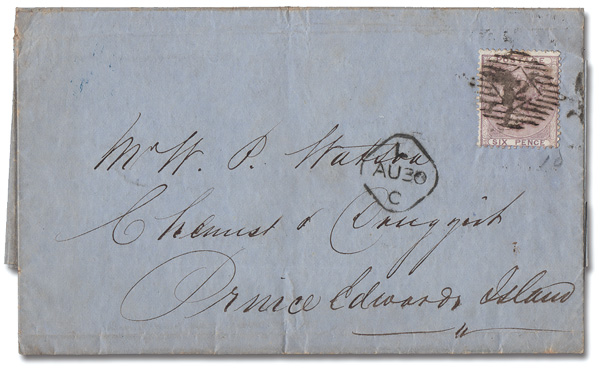 POSTAGE
SIX PENCE
Mr W. R. Watson
L
AU30
C
Chemist & Druggist
Prince Edwards Island